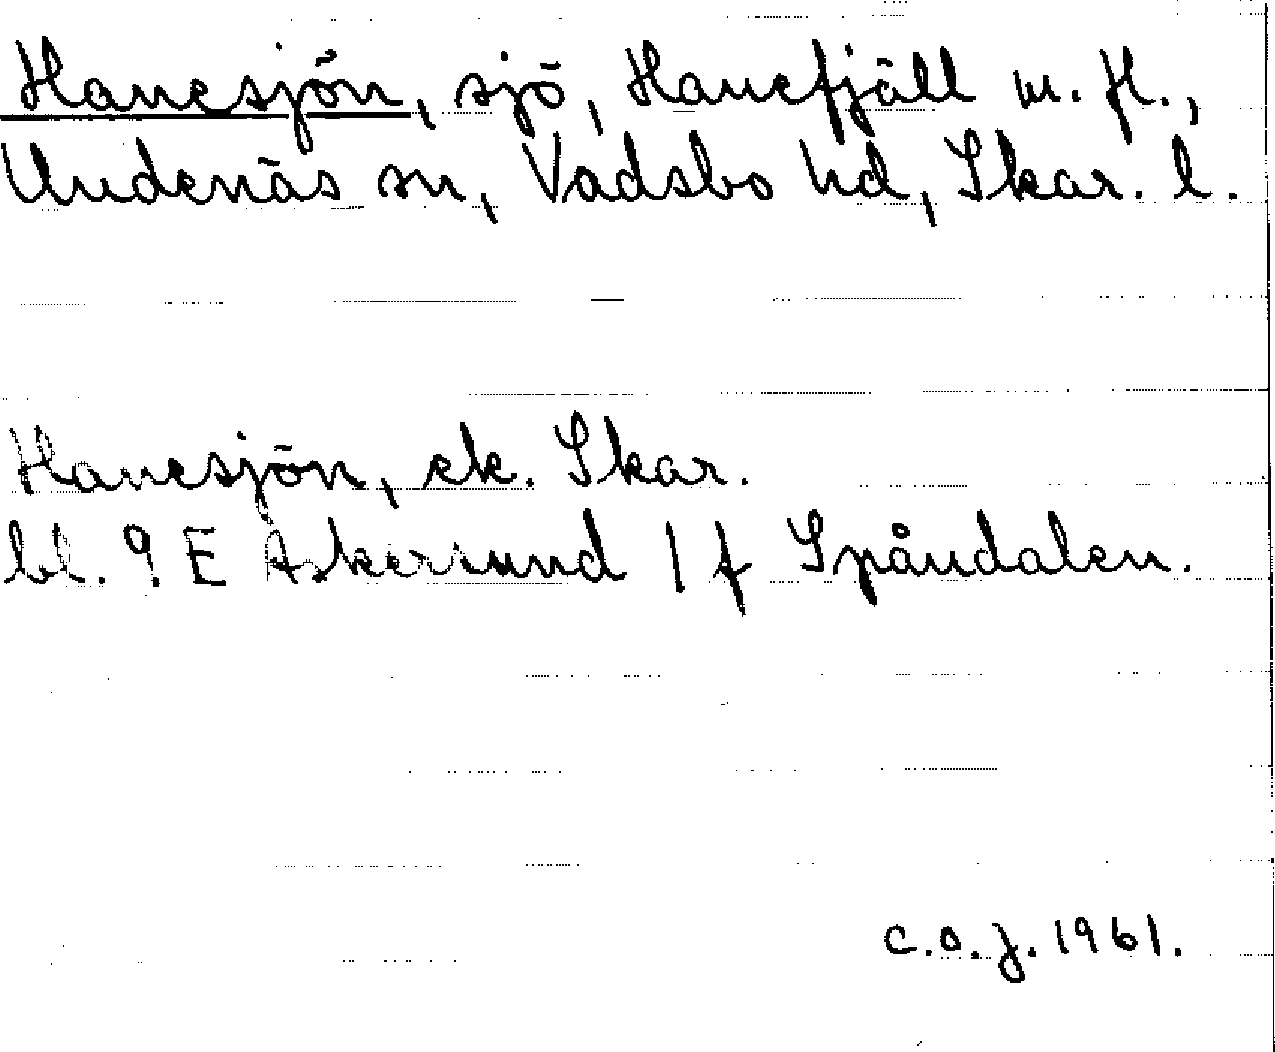 Hanesjön, sjö, Hanefjäll m. fl.,
Undenäs sn, Vadsbo hd, Skar. l.
Hanesjön, ek. Skar.
bl. 9 E Askersund 1 f Spåndalen.
C.O.J. 1961.